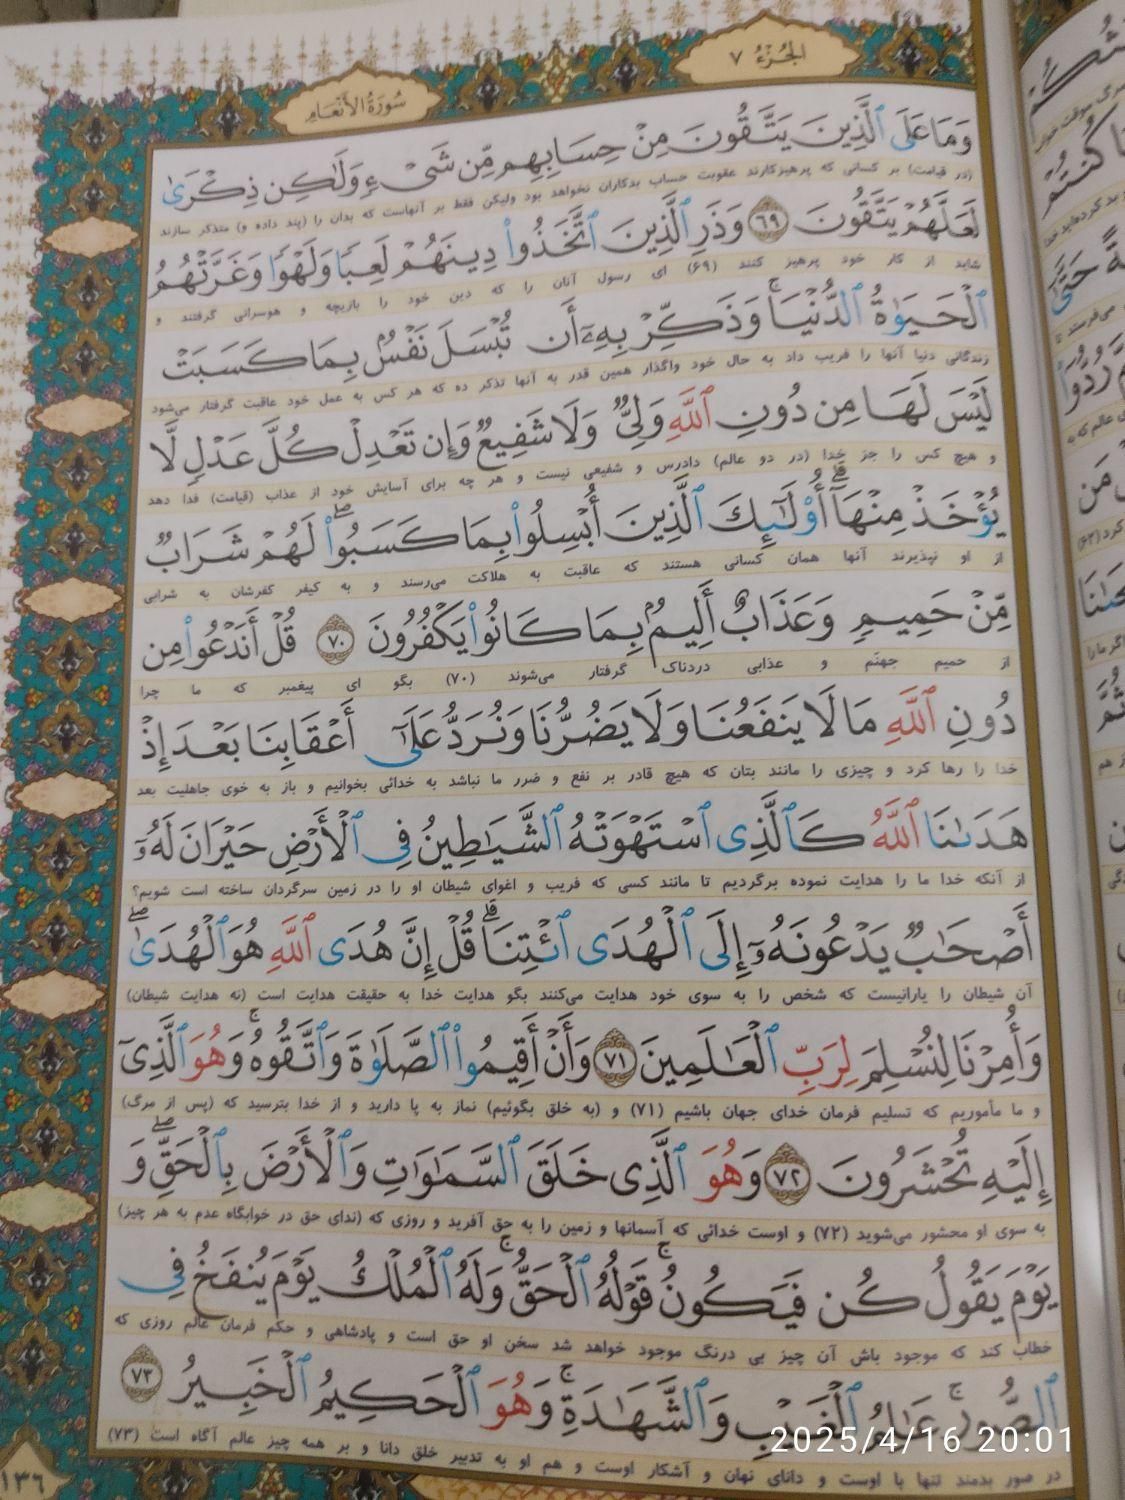 الجُزْءُ ٧
سُورَةُ الأَنْعَام
وَمَا عَلَى ٱلَّذِينَ يَتَّقُونَ مِنْ حِسَابِهِم مِّن شَىْءٍ وَلَٰكِن ذِكْرَىٰ
(در قیامت) بر کسانی که پرهیزکارند عقوبت حساب بدکاران نخواهد بود ولیکن فقط بر آنهاست که بدان را (پند داده و) متذکر سازند
لَعَلَّهُمْ يَتَّقُونَ ٦٩ وَذَرِ ٱلَّذِينَ ٱتَّخَذُوا۟ دِينَهُمْ لَعِبًا وَلَهْوًا وَغَرَّتْهُمُ
شاید از کار خود پرهیز کنند (۶۹) ای رسول آنان را که دین خود را بازیچه و هوسرانی گرفتند و
ٱلْحَيَوٰةُ ٱلدُّنْيَا ۚ وَذَكِّرْ بِهِۦٓ أَن تُبْسَلَ نَفْسٌۢ بِمَا كَسَبَتْ
زندگانی دنیا آنها را فریب داد به حال خود واگذار همین قدر به آنها تذکر ده که هر کس به عمل خود عاقبت گرفتار می‌شود
لَيْسَ لَهَا مِن دُونِ ٱللَّهِ وَلِىٌّ وَلَا شَفِيعٌ وَإِن تَعْدِلْ كُلَّ عَدْلٍ لَّا
و هیچ کس را جز خدا (در دو عالم) دادرس و شفیعی نیست و هر چه برای آسایش خود از عذاب (قیامت) فدا دهد
يُؤْخَذْ مِنْهَآ ۗ أُو۟لَٰٓئِكَ ٱلَّذِينَ أُبْسِلُوا۟ بِمَا كَسَبُوا۟ ۖ لَهُمْ شَرَابٌ
از او نپذیرند آنها همان کسانی هستند که عاقبت به هلاکت می‌رسند و به کیفر کفرشان به شرابی
مِّنْ حَمِيمٍ وَعَذَابٌ أَلِيمٌۢ بِمَا كَانُوا۟ يَكْفُرُونَ ٧٠ قُلْ أَنَدْعُوا۟ مِن
از حمیم جهنّم و عذابی دردناک گرفتار می‌شوند (۷۰) بگو ای پیغمبر که ما چرا
دُونِ ٱللَّهِ مَا لَا يَنفَعُنَا وَلَا يَضُرُّنَا وَنُرَدُّ عَلَىٰٓ أَعْقَابِنَا بَعْدَ إِذْ
خدا را رها کرد و چیزی را مانند بتان که هیچ قادر بر نفع و ضرر ما نباشد به خدائی بخوانیم و باز به خوی جاهلیت بعد
هَدَىٰنَا ٱللَّهُ كَٱلَّذِى ٱسْتَهْوَتْهُ ٱلشَّيَٰطِينُ فِى ٱلْأَرْضِ حَيْرَانَ لَهُۥٓ
از آنکه خدا ما را هدایت نموده برگردیم تا مانند کسی که فریب و اغوای شیطان او را در زمین سرگردان ساخته است شویم؟
أَصْحَٰبٌ يَدْعُونَهُۥٓ إِلَى ٱلْهُدَى ٱئْتِنَا ۗ قُلْ إِنَّ هُدَى ٱللَّهِ هُوَ ٱلْهُدَىٰ ۖ
آن شیطان را یارانیست که شخص را به سوی خود هدایت می‌کنند بگو هدایت خدا به حقیقت هدایت است (نه هدایت شیطان)
وَأُمِرْنَا لِنُسْلِمَ لِرَبِّ ٱلْعَٰلَمِينَ ٧١ وَأَنْ أَقِيمُوا۟ ٱلصَّلَوٰةَ وَٱتَّقُوهُ ۚ وَهُوَ ٱلَّذِىٓ
و ما مأموریم که تسلیم فرمان خدای جهان باشیم (۷۱) و (به خلق بگوئیم) نماز به پا دارید و از خدا بترسید که (پس از مرگ)
إِلَيْهِ تُحْشَرُونَ ٧٢ وَهُوَ ٱلَّذِى خَلَقَ ٱلسَّمَٰوَٰتِ وَٱلْأَرْضَ بِٱلْحَقِّ ۖ وَ
به سوی او محشور می‌شوید (۷۲) و اوست خدائی که آسمانها و زمین را به حق آفرید و روزی که (ندای حق در خوابگاه عدم به هر چیز)
يَوْمَ يَقُولُ كُن فَيَكُونُ ۚ قَوْلُهُ ٱلْحَقُّ ۚ وَلَهُ ٱلْمُلْكُ يَوْمَ يُنفَخُ فِى
خطاب کند که موجود باش آن چیز بی درنگ موجود خواهد شد سخن او حق است و پادشاهی و حکم فرمان عالم روزی که
ٱلصُّورِ ۚ عَٰلِمُ ٱلْغَيْبِ وَٱلشَّهَٰدَةِ ۚ وَهُوَ ٱلْحَكِيمُ ٱلْخَبِيرُ ٧٣
در صور بدمند تنها با اوست و دانای نهان و آشکار اوست و هم او به تدبیر خلق دانا و بر همه چیز عالم آگاه است (۷۳)
١٣٦
2025/4/16 20:01